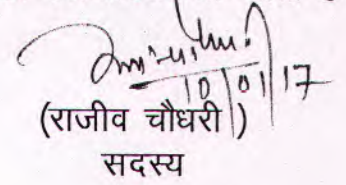 10/01/17
(राजीव चौधरी)
सदस्य